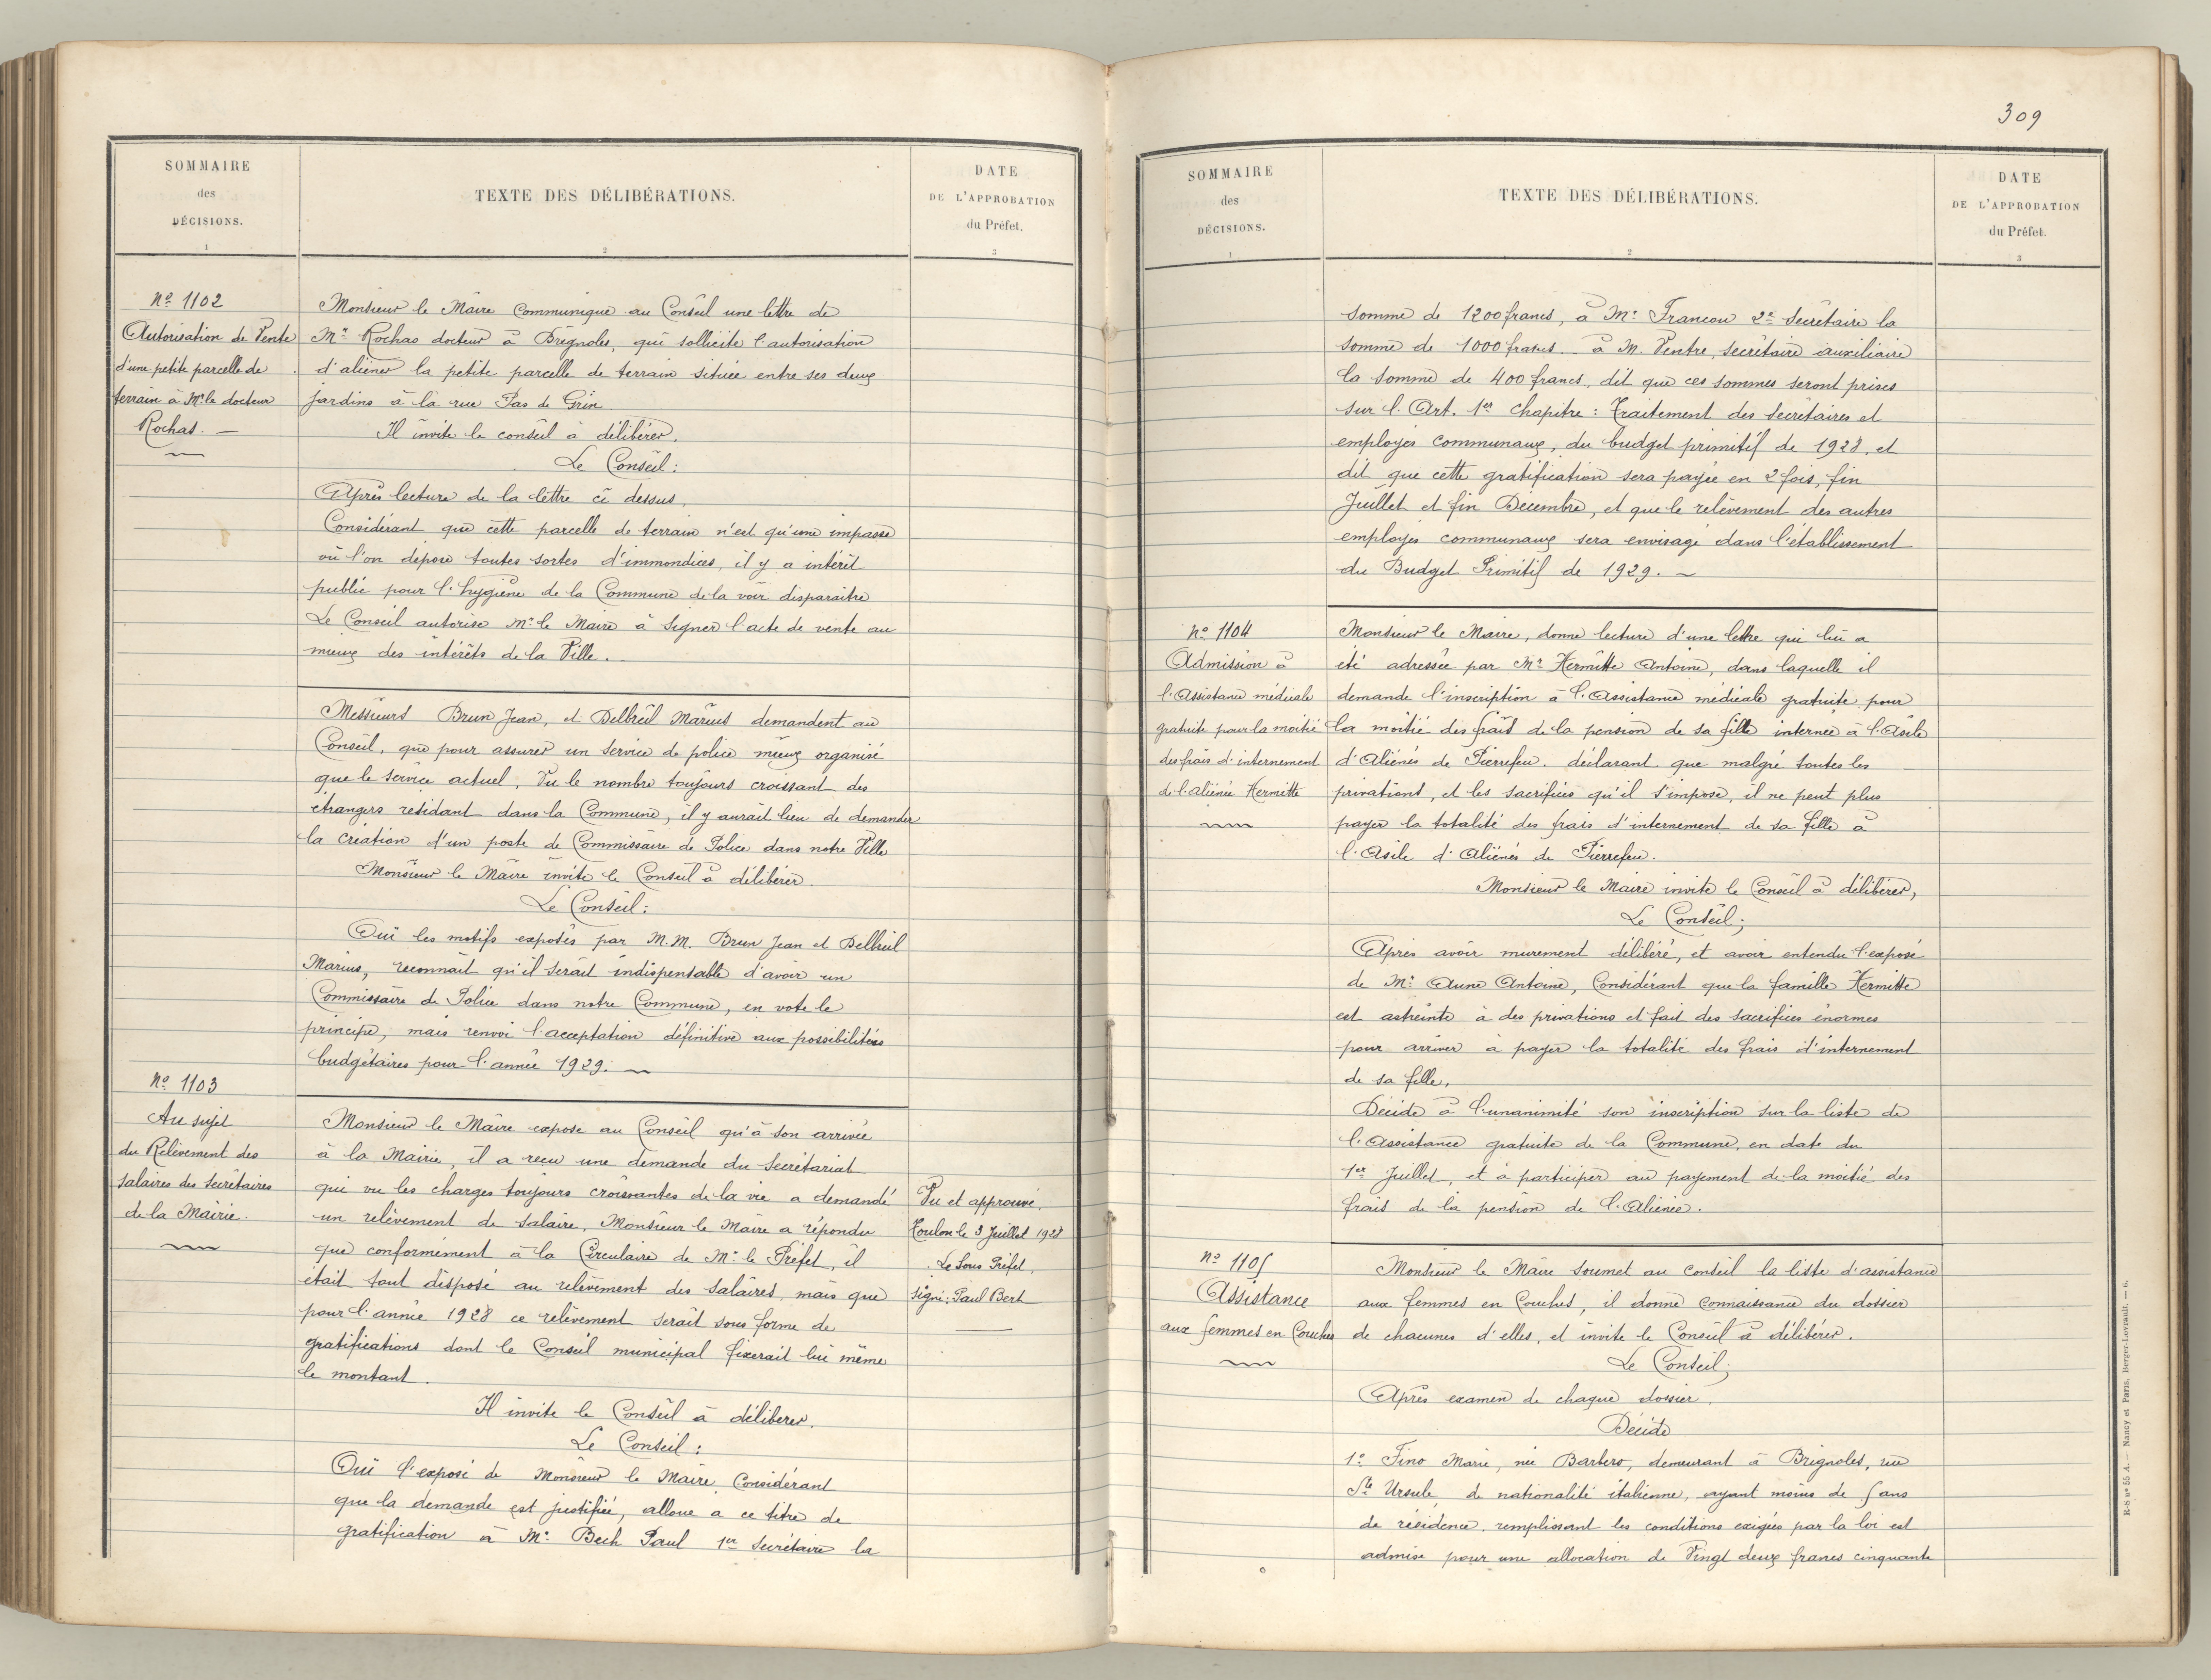 SOMMAIRE
des
DÉCISIONS.
1
TEXTE DES DÉLIBÉRATIONS.
2
DATE
DE L'APPROBATION
du Préfet.
3
No 1102
Autorisation de Vente
d'une petite parcelle de
terrain à Mr le docteur
Rochas. —
Monsieur le Maire communique au Conseil une lettre de
Mr Rochas docteur à Brignoles, qui sollicite l'autorisation
d'aliéner la petite parcelle de terrain située entre ses deux
jardins à la rue Pas de Grin
Il invite le conseil à délibérer.
Le Conseil:
Après lecture de la lettre ci dessus,
Considérant que cette parcelle de terrain n'est qu'une impasse
où l'on dépose toutes sortes d'immondices, il y a intérêt
public pour l'hygiène de la Commune de la voir disparaître
Le Conseil autorise Mr le Maire à signer l'acte de vente au
mieux des intérêts de la Ville.
Messieurs Brun Jean, et Delbreil Marius demandent au
Conseil, que pour assurer un service de police mieux organisé
que le service actuel, Vu le nombre toujours croissant des
étrangers résidant dans la Commune, il y aurait lieu de demander
la création d'un poste de Commissaire de Police dans notre Ville
Monsieur le Maire invite le Conseil à délibérer.
Le Conseil:
Oui les motifs exposés par M.M. Brun Jean et Delbreil
Marius, reconnait qu'il serait indispensable d'avoir un
Commissaire de Police dans notre Commune, en vote le
principe, mais renvoi l'acceptation définitive aux possibilités
budgétaires pour l'année 1929. —
No 1103
Au sujet
du Relèvement des
salaires des secrétaires
de la Mairie.
Monsieur le Maire expose au Conseil qu'à son arrivée
à la Mairie, il a reçu une demande du Secrétariat
qui vu les charges toujours croissantes de la vie a demandé
un relèvement de salaire, Monsieur le Maire a répondu
que conformément à la Circulaire de Mr le Préfet, il
était tout disposé au relèvement des salaires, mais que
pour l'année 1928 ce relèvement serait sous forme de
gratifications dont le Conseil municipal fixerait lui même
le montant.
Il invite le Conseil à délibérer.
Le Conseil:
Oui l'exposé de Monsieur le Maire, Considérant
que la demande est justifiée, alloue a ce titre de
gratification à Mr Bech Paul 1er secrétaire la
Vu et approuvé.
Toulon le 3 Juillet 1928
Le Sous Préfet,
signé: Paul Bert
309
SOMMAIRE
des
DÉCISIONS.
1
TEXTE DES DÉLIBÉRATIONS.
2
DATE
DE L'APPROBATION
du Préfet.
3
somme de 1200 francs, à Mr Francou 2e secrétaire la
somme de 1000 francs. à M. Ventre, secrétaire auxiliaire
la somme de 400 francs, dit que ces sommes seront prises
sur l'Art. 1er chapitre: Traitement des secrétaires et
employés communaux, du budget primitif de 1928, et
dit que cette gratification sera payée en 2 fois, fin
Juillet et fin Décembre, et que le relèvement des autres
employés communaux sera envisagé dans l'établissement
du Budget Primitif de 1929. —
No 1104
Admission à
l'Assistance médicale
gratuite pour la moitié
des frais d'internement
de l'aliénée Hermitte
Monsieur le Maire, donne lecture d'une lettre qui lui a
été adressée par Mr Hermitte Antoine, dans laquelle il
demande l'inscription à l'Assistance médicale gratuite pour
la moitié des frais de la pension de sa fille internée à l'Asile
d'Aliénés de Pierrefeu. déclarant que malgré toutes les
privations, et les sacrifices qu'il s'impose, il ne peut plus
payer la totalité des frais d'internement de sa fille à
l'Asile d'Aliénés de Pierrefeu.
Monsieur le Maire invite le Conseil à délibérer,
Le Conseil;
Après avoir murement délibéré, et avoir entendu l'exposé
de Mr Aune Antoine, Considérant que la famille Hermitte
est astreinte à des privations et fait des sacrifices énormes
pour arriver à payer la totalité des frais d'internement
de sa fille,
Décide à l'unanimité son inscription sur la liste de
l'Assistance gratuite de la Commune, en date du
1er Juillet, et à participer au payement de la moitié des
frais de la pension de l'Aliénée.
No 1105
Assistance
aux femmes en Couches
Monsieur le Maire soumet au Conseil la liste d'assistance
aux femmes en Couches, il donne connaissance du dossier
de chacunes d'elles, et invite le Conseil à délibérer.
Le Conseil;
Après examen de chaque dossier.
Décide
1o Fino Marie, née Barbero, demeurant à Brignoles, rue
Ste Ursule, de nationalité italienne, ayant moins de 5 ans
de résidence, remplissant les conditions exigées par la loi est
admise pour une allocation de Vingt deux francs cinquante
R-S no 55 A. — Nancy et Paris, Berger-Levrault. — 6.